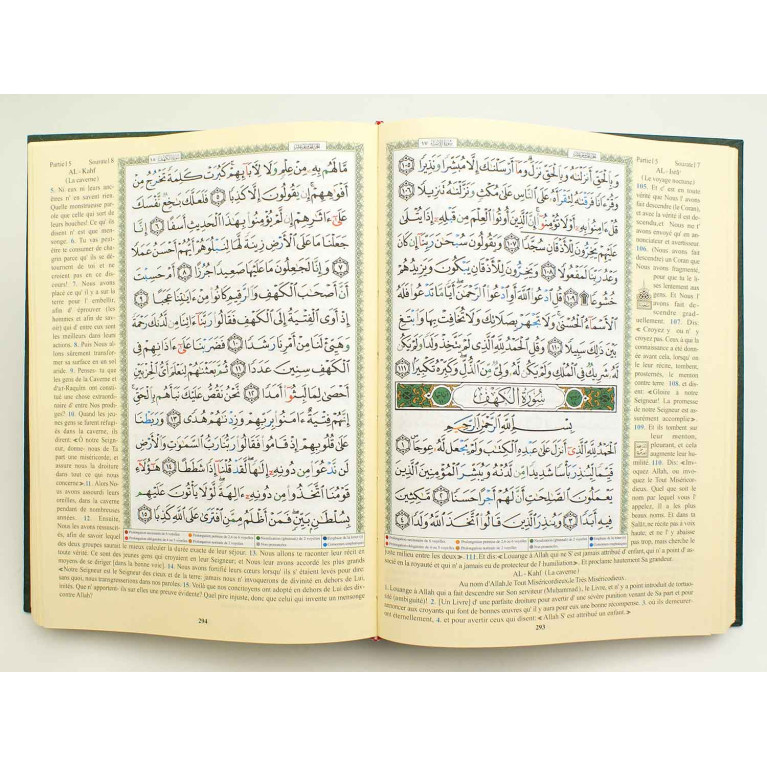 سورة الإسراء ١٧
وَبِالْحَقِّ أَنزَلْنَٰهُ وَبِالْحَقِّ نَزَلَ وَمَا أَرْسَلْنَٰكَ إِلَّا مُبَشِّرًا وَنَذِيرًا ١٠٥
وَقُرْءَانًا فَرَقْنَٰهُ لِتَقْرَأَهُۥ عَلَى النَّاسِ عَلَىٰ مُكْثٍ وَنَزَّلْنَٰهُ تَنزِيلًا ١٠٦
قُلْ ءَامِنُوا۟ بِهِۦٓ أَوْ لَا تُؤْمِنُوٓا۟ إِنَّ الَّذِينَ أُوتُوا۟ الْعِلْمَ مِن قَبْلِهِۦٓ إِذَا يُتْلَىٰ
عَلَيْهِمْ يَخِرُّونَ لِلْأَذْقَانِ سُجَّدًا ١٠٧ وَيَقُولُونَ سُبْحَٰنَ رَبِّنَآ إِن كَانَ
وَعْدُ رَبِّنَا لَمَفْعُولًا ١٠٨ وَيَخِرُّونَ لِلْأَذْقَانِ يَبْكُونَ وَيَزِيدُهُمْ
خُشُوعًا ١٠٩ قُلِ ادْعُوا۟ اللَّهَ أَوِ ادْعُوا۟ الرَّحْمَٰنَ أَيًّا مَّا تَدْعُوا۟ فَلَهُ
الْأَسْمَآءُ الْحُسْنَىٰ وَلَا تَجْهَرْ بِصَلَاتِكَ وَلَا تُخَافِتْ بِهَا وَابْتَغِ
بَيْنَ ذَٰلِكَ سَبِيلًا ١١٠ وَقُلِ الْحَمْدُ لِلَّهِ الَّذِى لَمْ يَتَّخِذْ وَلَدًا وَلَمْ يَكُن
لَّهُۥ شَرِيكٌ فِى الْمُلْكِ وَلَمْ يَكُن لَّهُۥ وَلِىٌّ مِّنَ الذُّلِّ وَكَبِّرْهُ تَكْبِيرًۢا ١١١
سُورَةُ الكَهْفِ
بِسْمِ اللَّهِ الرَّحْمَٰنِ الرَّحِيمِ
الْحَمْدُ لِلَّهِ الَّذِىٓ أَنزَلَ عَلَىٰ عَبْدِهِ الْكِتَٰبَ وَلَمْ يَجْعَل لَّهُۥ عِوَجَا ١
قَيِّمًا لِّيُنذِرَ بَأْسًا شَدِيدًا مِّن لَّدُنْهُ وَيُبَشِّرَ الْمُؤْمِنِينَ الَّذِينَ
يَعْمَلُونَ الصَّٰلِحَٰتِ أَنَّ لَهُمْ أَجْرًا حَسَنًا ٢ مَّٰكِثِينَ
فِيهِ أَبَدًا ٣ وَيُنذِرَ الَّذِينَ قَالُوا۟ اتَّخَذَ اللَّهُ وَلَدًا ٤
Partie15 Sourate17
AL-Isrâ'
(Le voyage nocturne)
105. Et c' est en toute
vérité que Nous l' avons
fait descendre (le Coran),
et avec la vérité il est
descendu,et Nous ne t'
avons envoyé qu' en
annonciateur et avertisseur.
106. (Nous avons fait
descendre) un Coran que
Nous avons fragmenté,
pour que tu le li-
ses lentement aux
gens. Et Nous l'
avons fait des-
cendre gradu-
ellement. 107. Dis:
≪Croyez y ou n' y
croyez pas. Ceux à qui la
connaissance a été donnée
avant cela, lorsqu' on le
leur récite, tombent,
prosternés, le menton
contre terre. 108. et disent:
≪Gloire à notre
Seigneur! La promesse
de notre Seigneur est as-
surément accomplie≫.
109. Et ils tombent sur
leur menton,
pleurant, et cela
augmente leur hu-
milité. 110. Dis: ≪In-
voquez Allah, ou invoquez
le Tout Miséricor-
dieux. Quel que soit le
nom par lequel vous l'
appelez, Il a les plus
beaux noms. Et dans ta
Salât, ne récite pas à voix
haute; et ne l' y abaisse
pas trop, mais cherche le
juste milieu entre les deux≫. 111.Et dis: ≪Louange à Allah qui ne S' est jamais attribué d' enfant,qui n' a point d' asso-
cié en la royauté et qui n' a jamais eu de protecteur de l' humiliation≫. Et proclame hautement Sa grandeur.
AL- Kahf (La caverne)
Au nom d'Allah,le Tout Miséricordieux,le Très Miséricordieux.
1. Louange à Allah qui a fait descendre sur Son serviteur (Muhammad), le Livre, et n' y a point introduit de tortuo-
sité (ambiguïté)! 2. [Un Livre] d' une parfaite droiture pour avertir d' une sévère punition venant de Sa part et pour
annoncer aux croyants qui font de bonnes œuvres qu' il y aura pour eux une bonne récompense. 3. où ils demeurer-
ont éternellement, 4. et pour avertir ceux qui disent: ≪Allah S' est attribué un enfant.≫
293
سورة الكهف ١٨
مَّا لَهُم بِهِۦ مِنْ عِلْمٍ وَلَا لِءَابَآئِهِمْ كَبُرَتْ كَلِمَةً تَخْرُجُ مِنْ
أَفْوَٰهِهِمْ إِن يَقُولُونَ إِلَّا كَذِبًا ٥ فَلَعَلَّكَ بَٰخِعٌ نَّفْسَكَ
عَلَىٰٓ ءَاثَٰرِهِمْ إِن لَّمْ يُؤْمِنُوا۟ بِهَٰذَا الْحَدِيثِ أَسَفًا ٦ إِنَّا
جَعَلْنَا مَا عَلَى الْأَرْضِ زِينَةً لَّهَا لِنَبْلُوَهُمْ أَيُّهُمْ أَحْسَنُ عَمَلًا
٧ وَإِنَّا لَجَٰعِلُونَ مَا عَلَيْهَا صَعِيدًا جُرُزًا ٨ أَمْ حَسِبْتَ
أَنَّ أَصْحَٰبَ الْكَهْفِ وَالرَّقِيمِ كَانُوا۟ مِنْ ءَايَٰتِنَا عَجَبًا ٩
إِذْ أَوَى الْفِتْيَةُ إِلَى الْكَهْفِ فَقَالُوا۟ رَبَّنَآ ءَاتِنَا مِن لَّدُنكَ رَحْمَةً
وَهَيِّئْ لَنَا مِنْ أَمْرِنَا رَشَدًا ١٠ فَضَرَبْنَا عَلَىٰٓ ءَاذَانِهِمْ فِى
الْكَهْفِ سِنِينَ عَدَدًا ١١ ثُمَّ بَعَثْنَٰهُمْ لِنَعْلَمَ أَىُّ الْحِزْبَيْنِ
أَحْصَىٰ لِمَا لَبِثُوٓا۟ أَمَدًا ١٢ نَّحْنُ نَقُصُّ عَلَيْكَ نَبَأَهُم بِالْحَقِّ
إِنَّهُمْ فِتْيَةٌ ءَامَنُوا۟ بِرَبِّهِمْ وَزِدْنَٰهُمْ هُدًى ١٣ وَرَبَطْنَا
عَلَىٰ قُلُوبِهِمْ إِذْ قَامُوا۟ فَقَالُوا۟ رَبُّنَا رَبُّ السَّمَٰوَٰتِ وَالْأَرْضِ
لَن نَّدْعُوَا۟ مِن دُونِهِۦٓ إِلَٰهًا لَّقَدْ قُلْنَآ إِذًا شَطَطًا ١٤ هَٰٓؤُلَآءِ
قَوْمُنَا اتَّخَذُوا۟ مِن دُونِهِۦٓ ءَالِهَةً لَّوْلَا يَأْتُونَ عَلَيْهِم
بِسُلْطَٰنٍۭ بَيِّنٍ فَمَنْ أَظْلَمُ مِمَّنِ افْتَرَىٰ عَلَى اللَّهِ كَذِبًا ١٥
Partie15 Sourate18
AL- Kahf
(La caverne)
5. Ni eux ni leurs anc-
êtres n' en savent rien.
Quelle monstrueuse pa-
role que celle qui sort de
leurs bouches! Ce qu' ils
disent n' est que men-
songe. 6. Tu vas peut-
être te consumer de cha-
grin parce qu' ils se dé-
tournent de toi et ne
croient pas en ce dis-
cours! 7. Nous avons
placé ce qu' il y a sur la
terre pour l' embellir,
afin d' éprouver (les
hommes et afin de sav-
oir) qui d' entre eux sont
les meilleurs dans leurs
actions. 8. Puis Nous al-
lons sûrement transfor-
mer sa surface en un sol
aride. 9. Penses- tu que les
gens de la Caverne et
d'ar-Raquîm ont consti-
tué une chose extraordi-
naire d' entre Nos prod-
iges? 10. Quand les jeu-
nes gens se furent réfugi-
és dans la caverne, ils
dirent: ≪Ô notre Seign-
eur, donne- nous de Ta
part une miséricorde, et
assure nous la droiture
dans tout ce qui nous con-
cerne≫.11. Alors Nous
avons assourdi leurs
oreilles, dans la caverne
pendant de nombreuses
années. 12. Ensuite,
Nous les avons ressuscit-
és, afin de savoir lequel
des deux groupes saurait le mieux calculer la durée exacte de leur séjour. 13. Nous allons te raconter leur récit en
toute vérité. Ce sont des jeunes gens qui croyaient en leur Seigneur; et Nous leur avons accordé les plus grands
moyens de se diriger [dans la bonne voie]. 14. Nous avons fortifié leurs cœurs lorsqu' ils s' étaient levés pour dire:
≪Notre Seigneur est le Seigneur des cieux et de la terre: jamais nous n' invoquerons de divinité en dehors de Lui,
sans quoi, nous transgresserions dans nos paroles. 15. Voilà que nos concitoyens ont adopté en dehors de Lui des div-
inités. Que n' apportent- ils sur elles une preuve évidente? Quel pire injuste, donc que celui qui invente un mensonge
contre Allah?
294